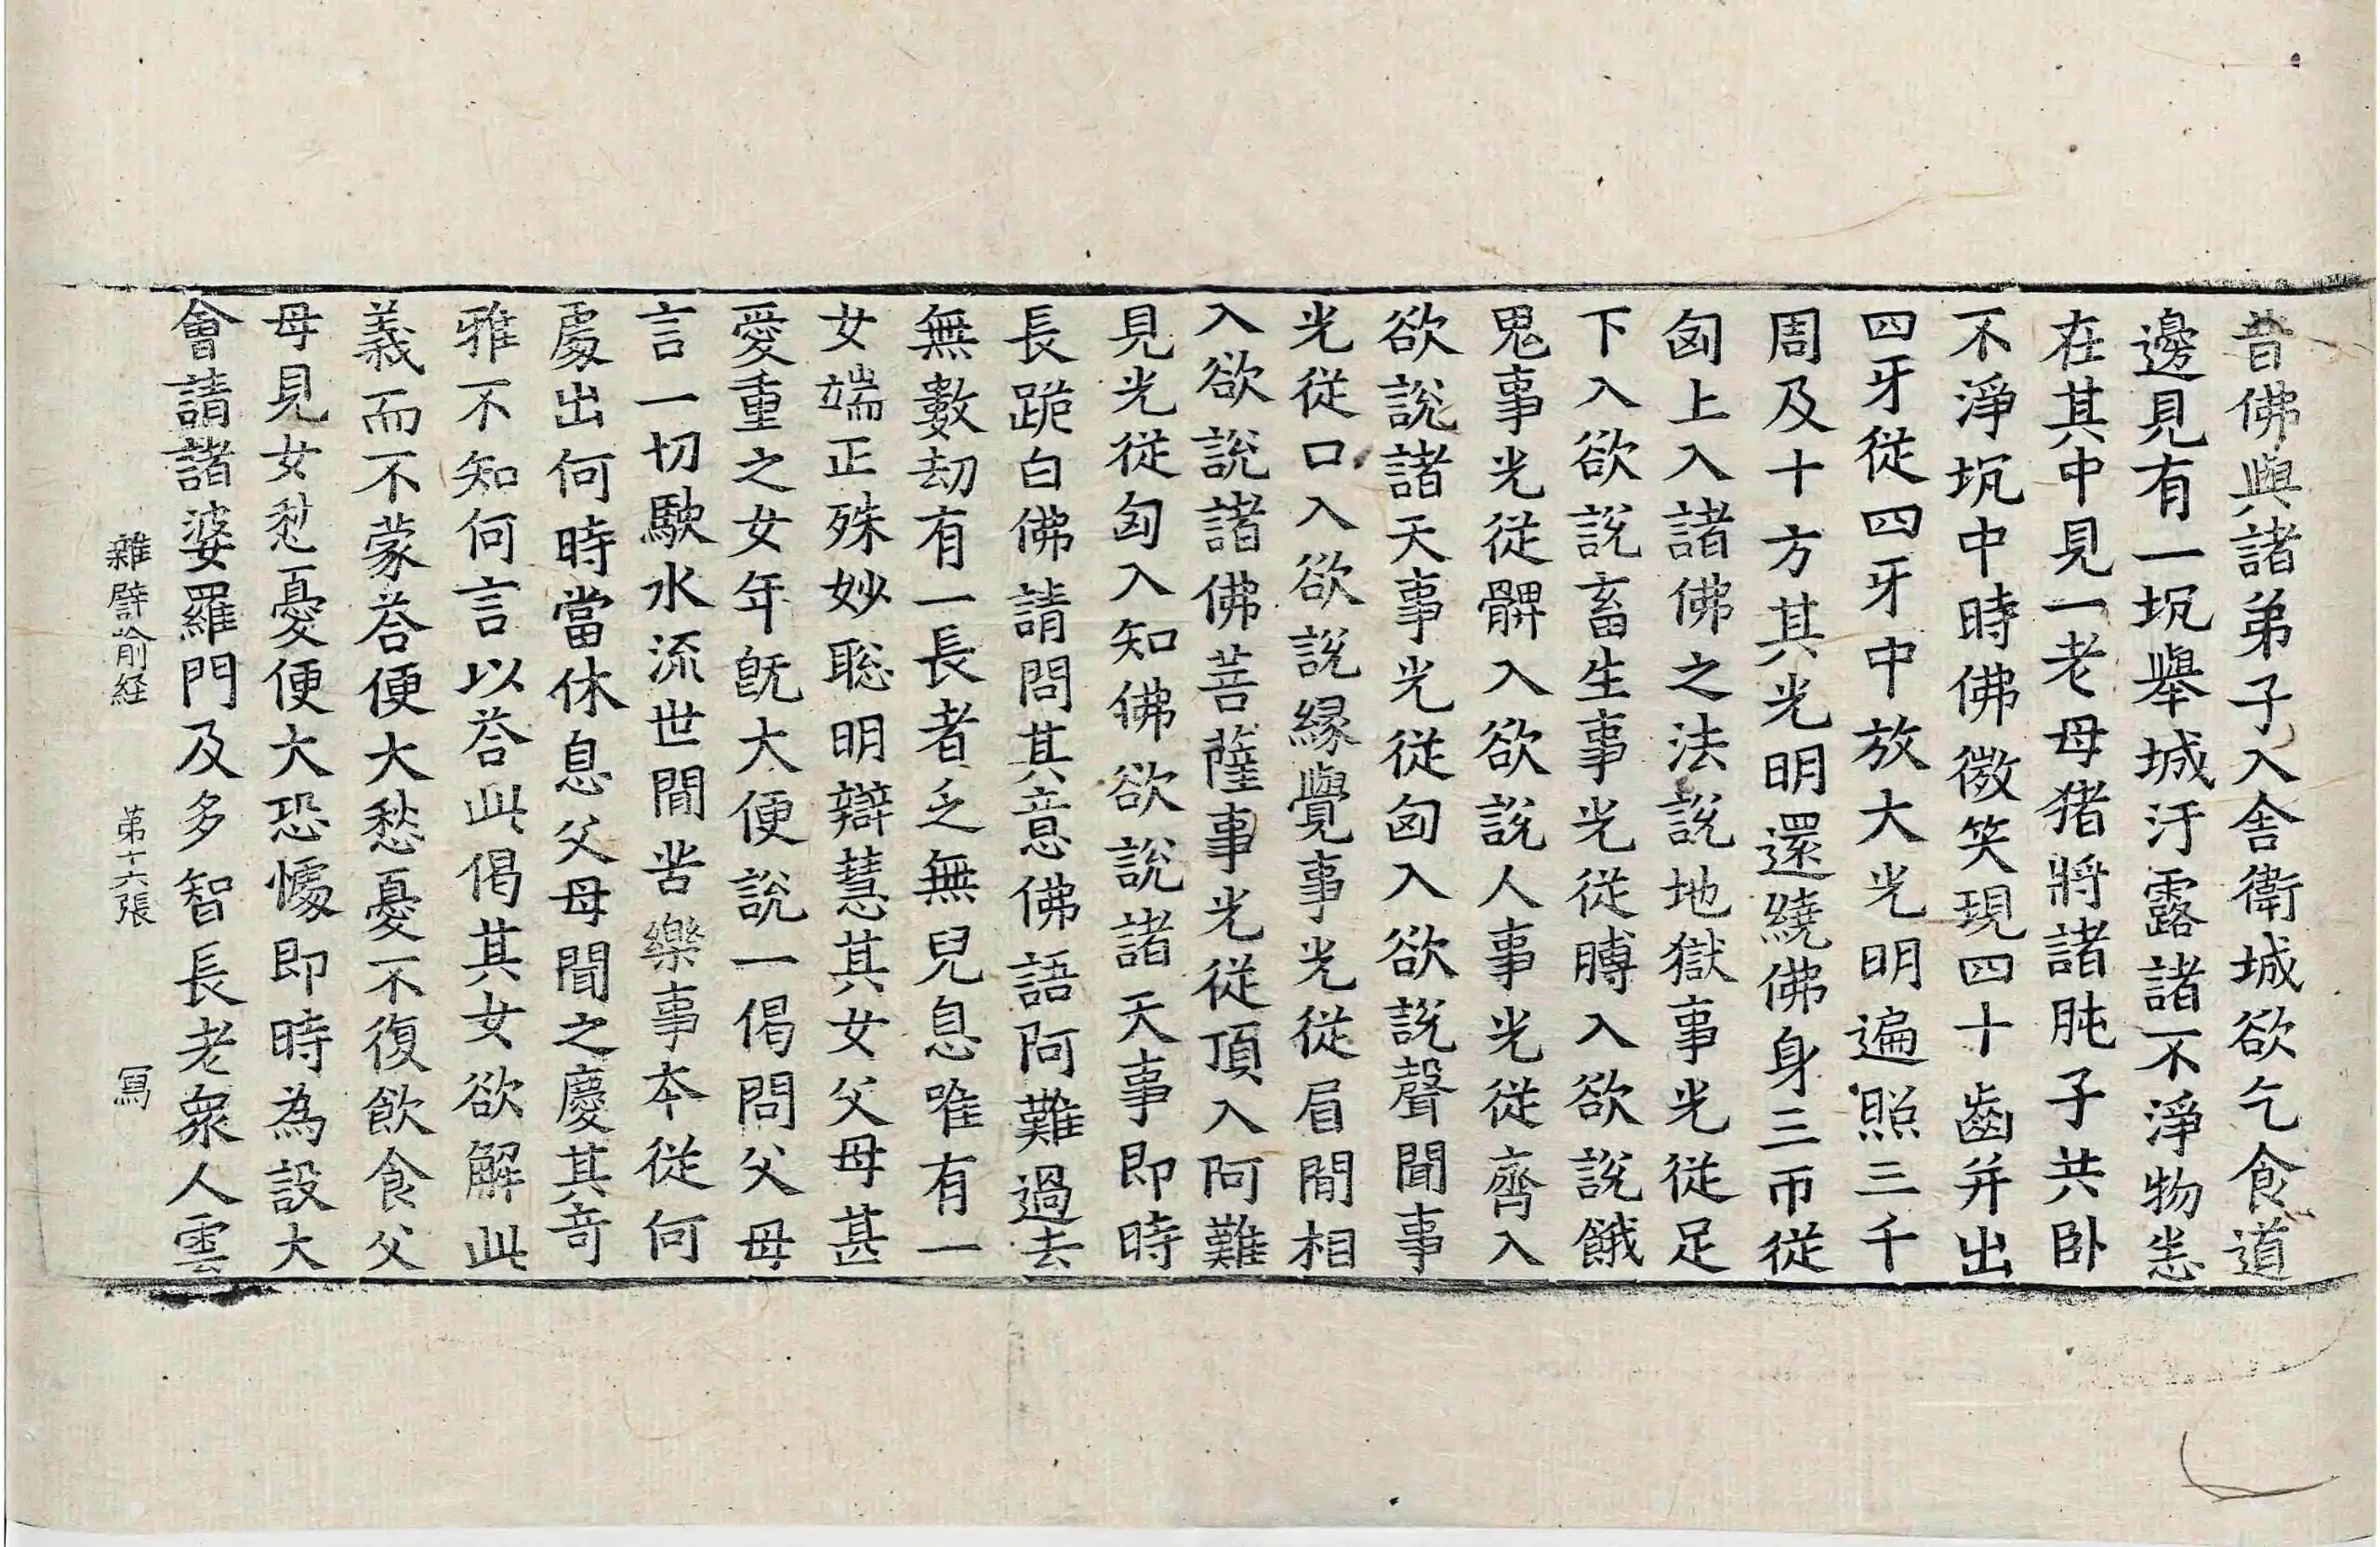 昔佛與諸弟子入舎衛城欲乞食道
邊見有一坑舉城汙露諸不淨物悉
在其中見一老母猪將諸肫子共卧
不淨坑中時佛微笑現四十齒并出
四牙從四牙中放大光明遍照三千
周及十方其光明還繞佛身三帀從
匈上入諸佛之法說地獄事光從足
下入欲說畜生事光從䏝入欲說餓
鬼事光從髀入欲說人事光從齊入
欲說諸天事光從匈入欲說聲聞事
光從口入欲說緣覺事光從眉間相
入欲說諸佛菩薩事光從頂入阿難
見光從匈入知佛欲說諸天事即時
長跪白佛請問其意佛語阿難過去
無數劫有一長者乏無兒息唯有一
女端正殊妙聡明辯慧其女父母甚
愛重之女年旣大便說一偈問父母
言一切駛水流世間苦樂事本從何
處出何時當休息父母聞之慶其奇
雅不知何言以荅此偈其女欲解此
義而不蒙荅便大愁憂不復飲食父
母見女愁憂便大恐懅即時為設大
會請諸婆羅門及多智長老衆人雲
雜譬喻経 第十六張 冩